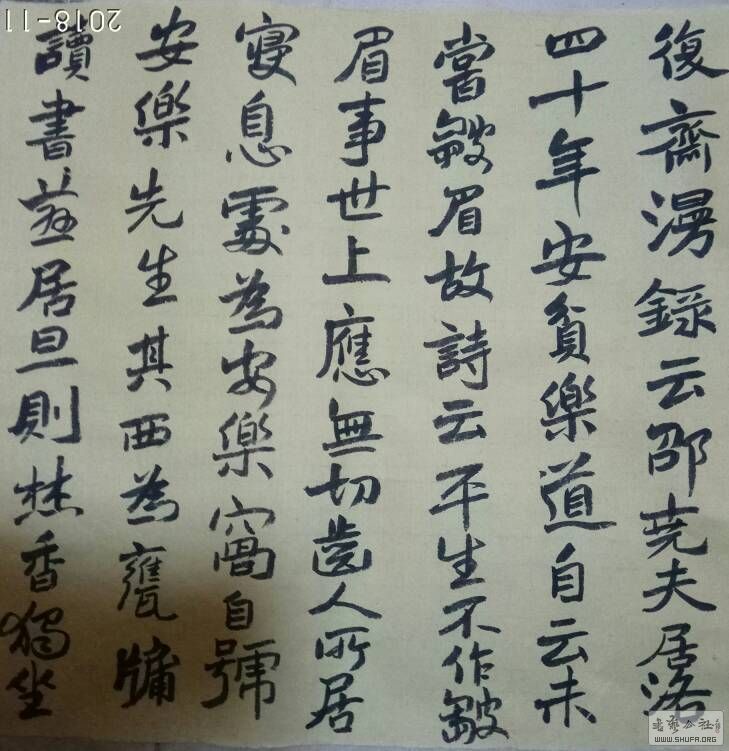 復齋漫錄云邵尭夫居洛
四十年安貧樂道自云未
嘗皺眉故詩云平生不作皺
眉事世上應無切齒人所居
寝息處為安樂窩自號
安樂先生其西為甕牖
讀書燕居旦則焚香獨坐
2018-11
書藝公社
WWW.SHUFA.ORG